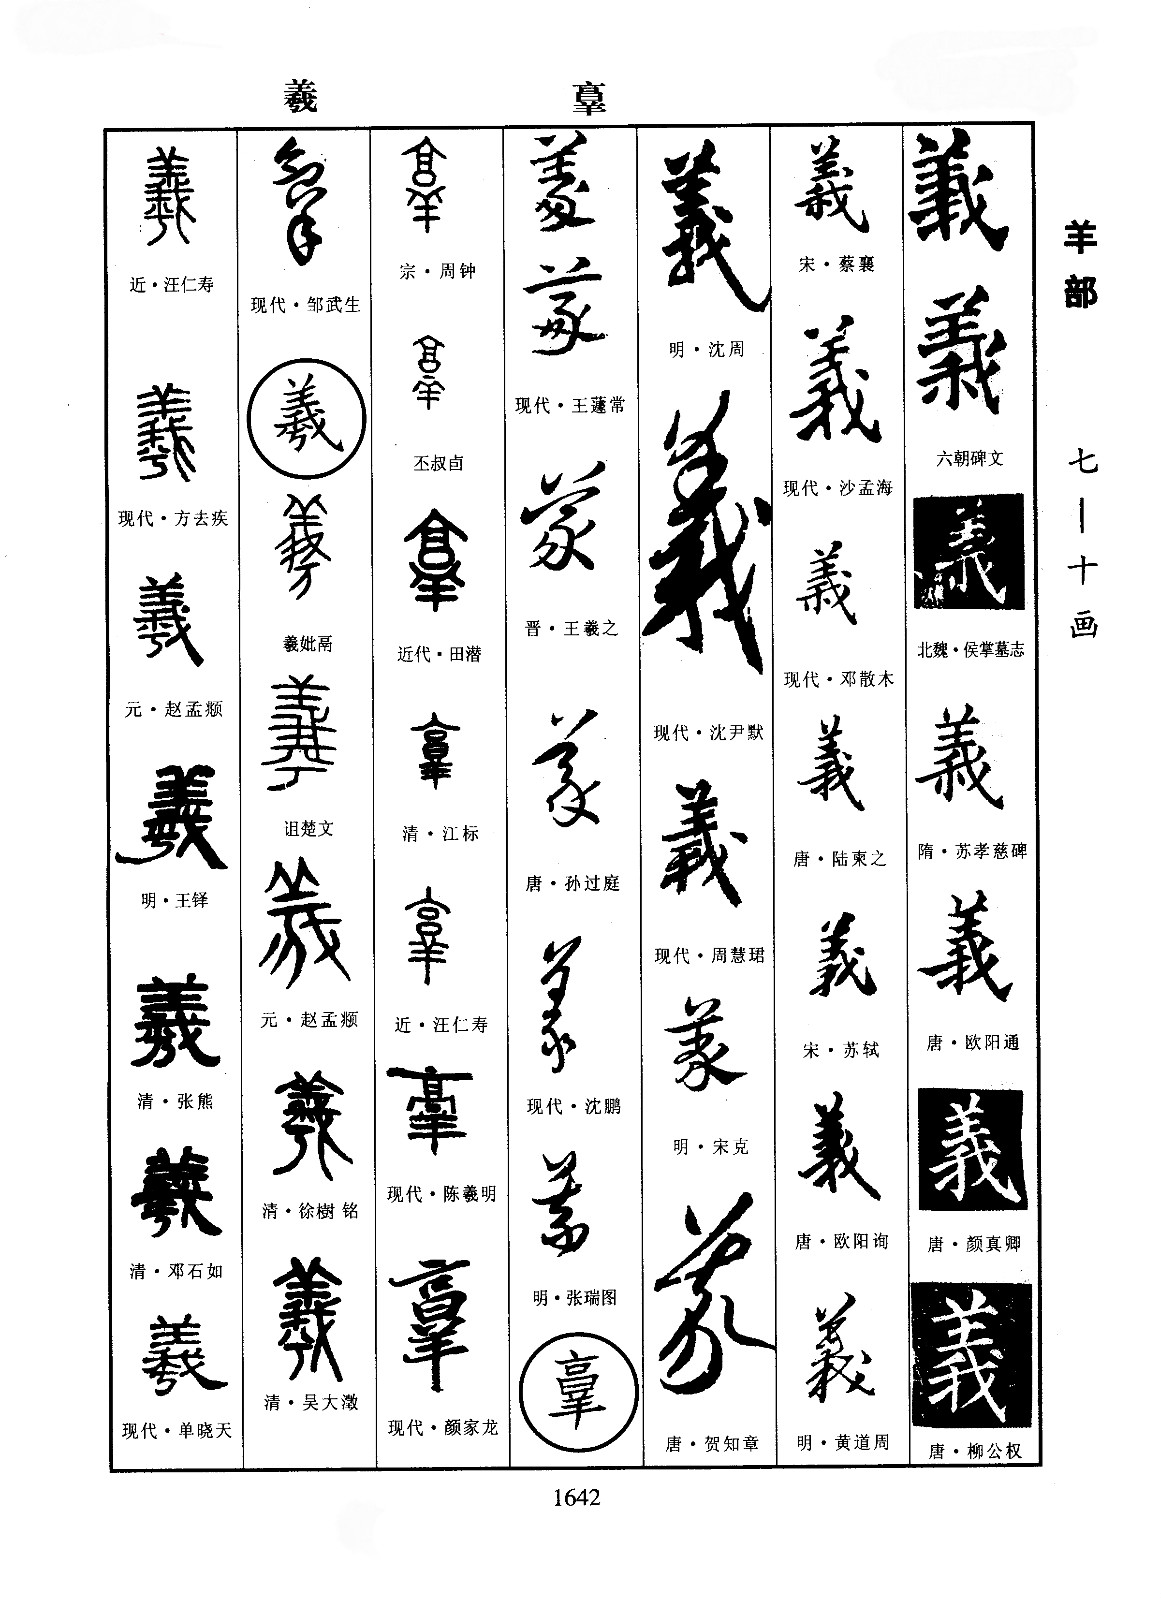 羲 𦎧
羊部
七—十画
義
義
六朝碑文
義
北魏·侯掌墓志
義
隋·苏孝慈碑
義
唐·欧阳通
義
唐·颜真卿
義
唐·柳公权
義
宋·蔡襄
義
现代·沙孟海
義
现代·邓散木
義
唐·陆柬之
義
宋·苏轼
義
唐·欧阳询
義
明·黄道周
義
明·沈周
義
现代·沈尹默
義
现代·周慧珺
義
明·宋克
義
唐·贺知章
義
義
现代·王蘧常
義
晋·王羲之
義
唐·孙过庭
義
现代·沈鹏
義
明·张瑞图
𦎧
𦎧
宗·周钟
𦎧
丕叔卣
𦎧
近代·田潜
𦎧
清·江标
𦎧
近·汪仁寿
𦎧
现代·陈羲明
𦎧
现代·颜家龙
𦎧
现代·邹武生
羲
羲
羲妣鬲
羲
诅楚文
羲
元·赵孟頫
羲
清·徐樹铭
羲
清·吴大澂
羲
近·汪仁寿
羲
现代·方去疾
羲
元·赵孟頫
羲
明·王铎
羲
清·张熊
羲
清·邓石如
羲
现代·单晓天
1642